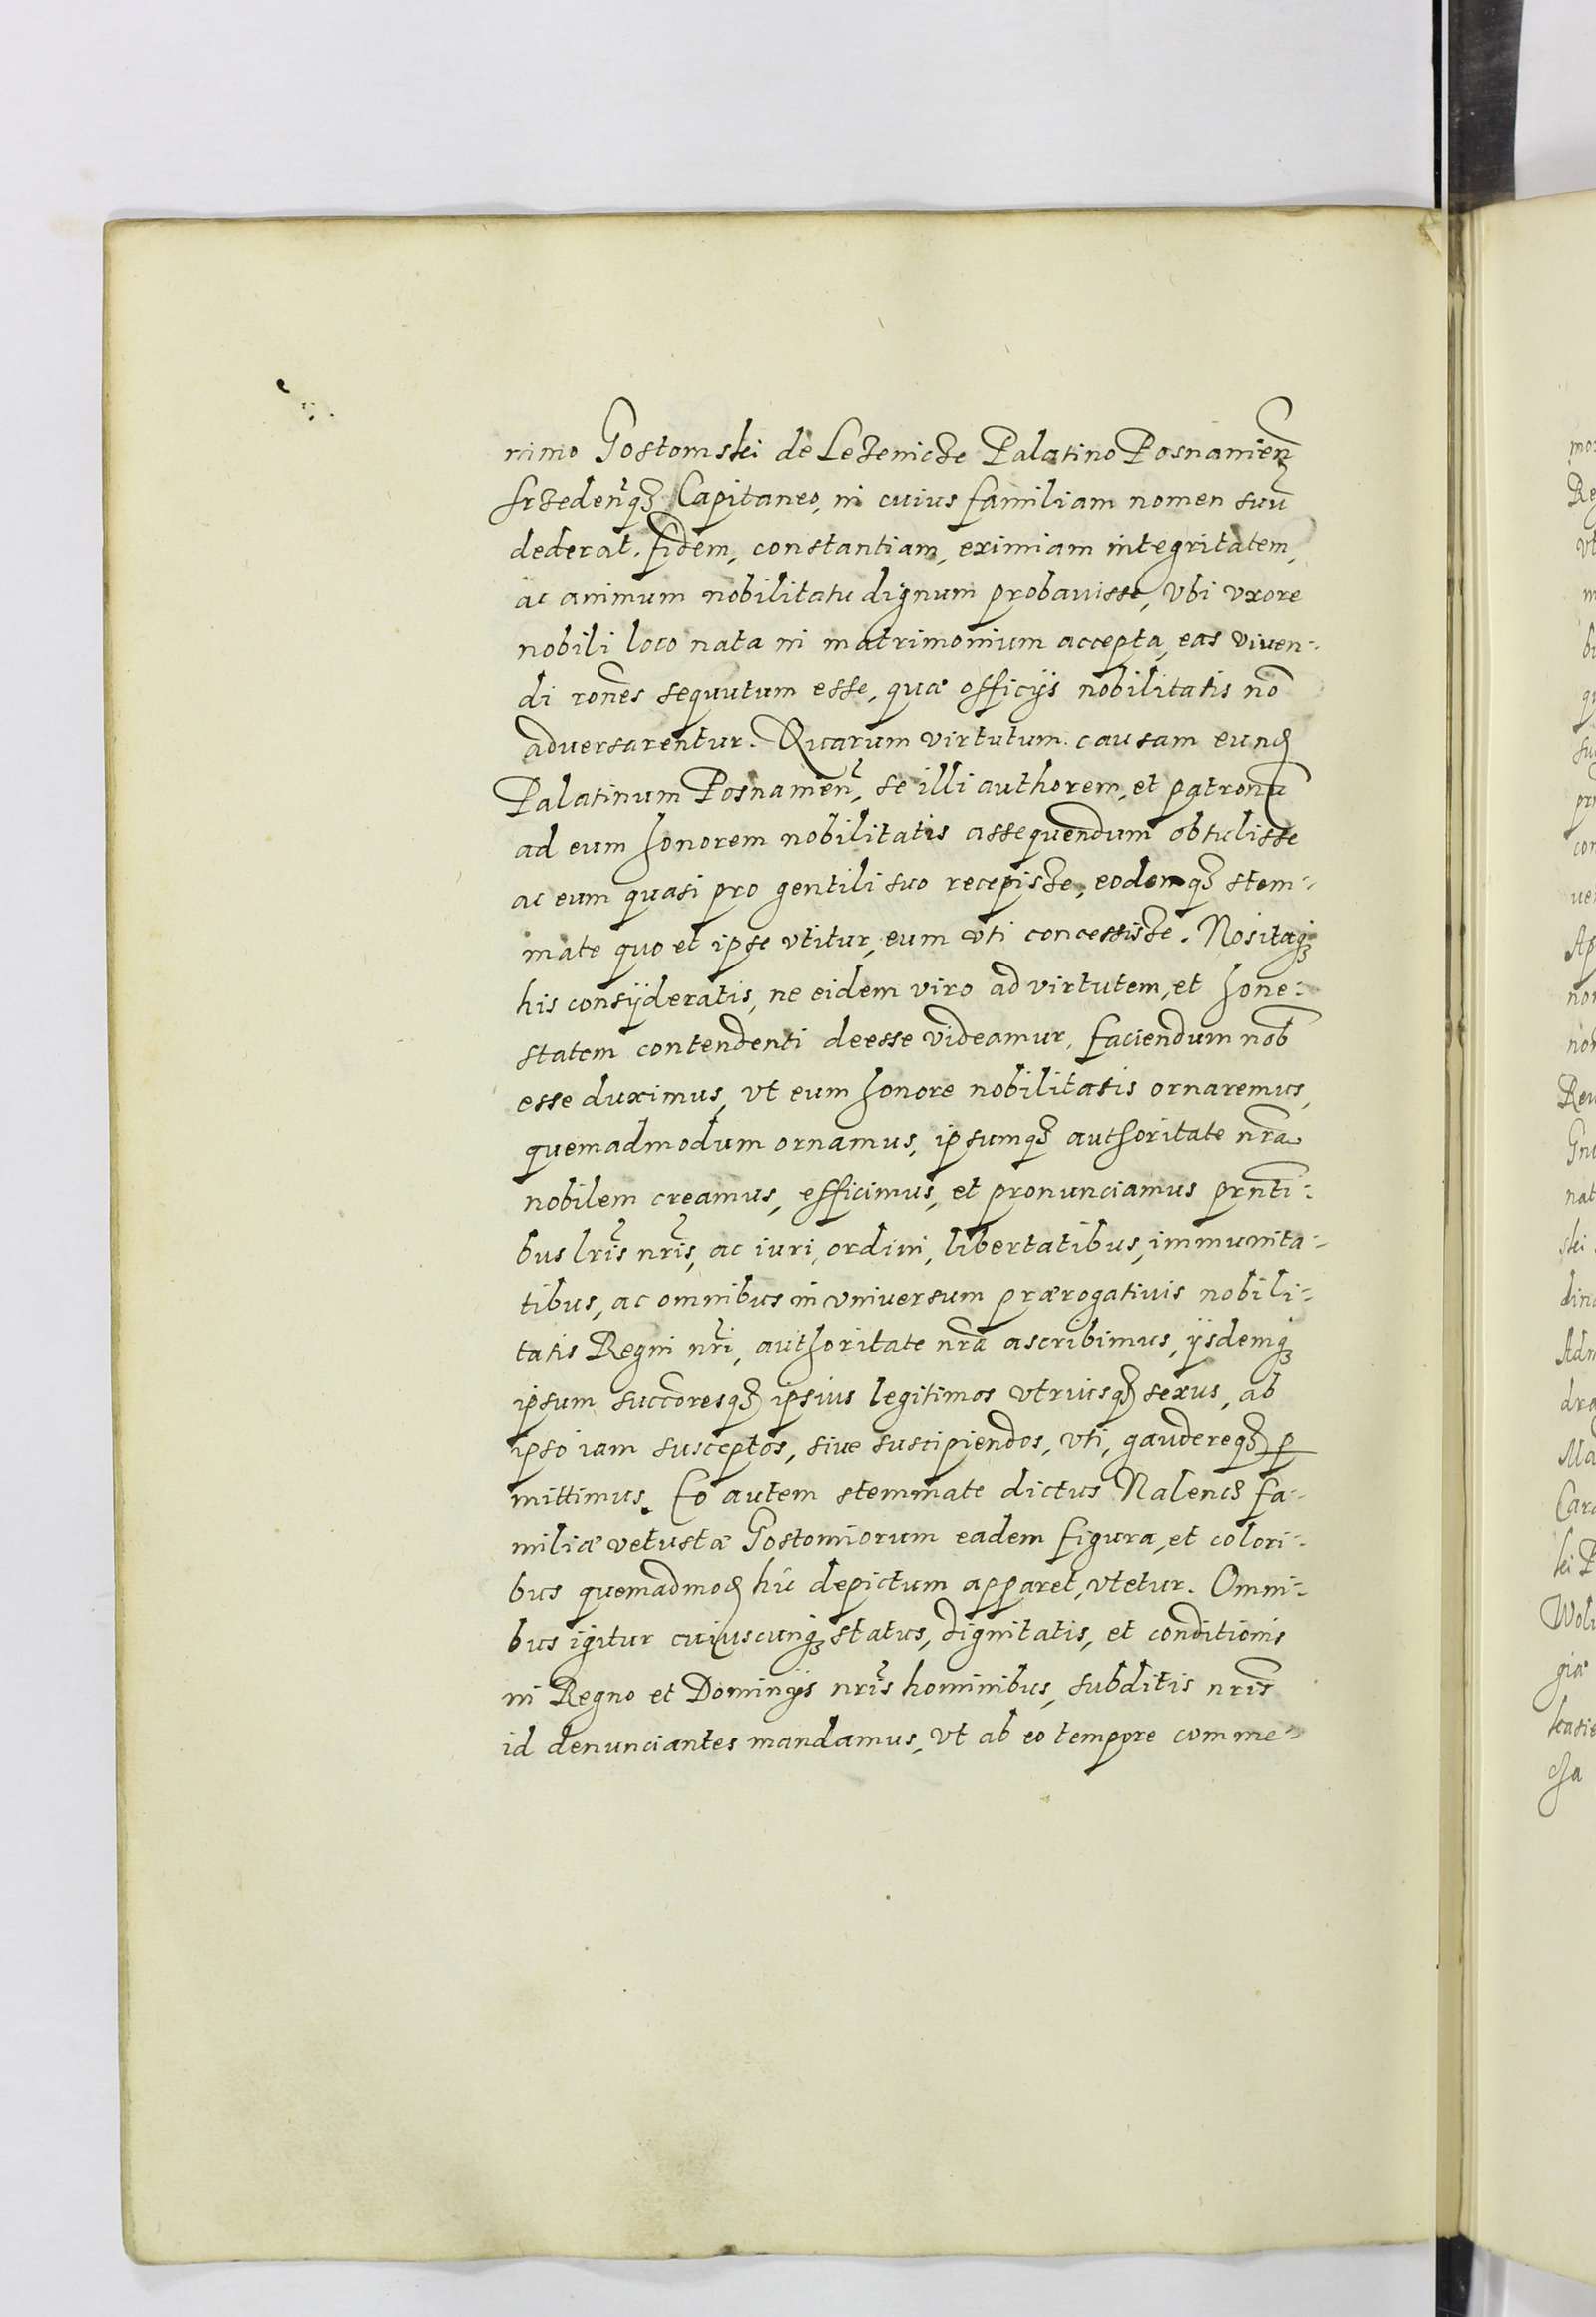 nimo Gostomski de Lezenicze Palatino Posnanien̄
srzeden̄q₃ Capitaneo, in cuius familiam nomen suū
dederat. fidem, constantiam, eximiam integritatem,
ac animum nobilitatu dignum probauisse, Vbi vxore
nobili loco nata in matrimonium accepta, eas viuen-
di rōnes sequutum esse, quæ officijs nobilitatis nō
adversarentur. Quarum virtutum causam eund̄
Palatinum Posnamen̄, se illi authorem, et patronū
ad eum honorem nobilitatis assequendum obtulisse
ac eum quasi pro gentili suo recepisse, eodemq₃ stem-
mate quo et ipse vtitur, eum vti concessisse. Nos itaq₃
his consyderatis, ne eidem viro ad virtutem, et hone-
statem contendenti deesse videamur, faciendum nob̄
esse duximus, vt eum honore nobilitatis ornaremus,
quemadmodum ornamus, ipsumq₃ authoritate nr̄a
nobilem creamus, efficimus, et pronunciamus prn̄ti-
bus lr̄is nr̄is, ac iuri, ordini, libertatibus, immunita-
tibus, ac omnibus in vniversum prærogatiuis nobili-
tatis Regni nr̄i, authoritate nr̄a ascribimus, ijsdemq₃
ipsum succōresq₃ ipsius legitimos vtriusq₃ sexus, ab
ipso iam susceptos, siue suscipiendos, vti, gaudereq₃ ꝑ
mittimus. Eo autem stemmate dictus Nalencz fa-
miliæ vetustæ Gostomiorum eadem figura, et colori-
bus quemadmod̄ hic depictum apparet, vtetur. Omni-
bus igitur cuiuscunq₃ status, dignitatis, et conditionis
in Regno et Dominijs nr̄is hominibus, subditis nr̄is
id denunciantes mandamus, vt ab eo tempore comme-